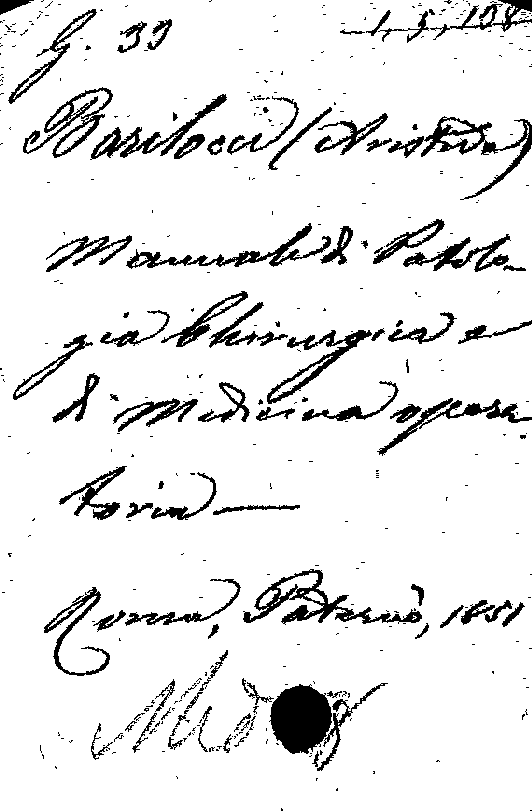 G. 33 1, 5, 198
Barilocci (Aristide)
Manuale di Patolo-
gia Chirurgica e
di Medicina opera
toria —
Roma, Paternò, 1851